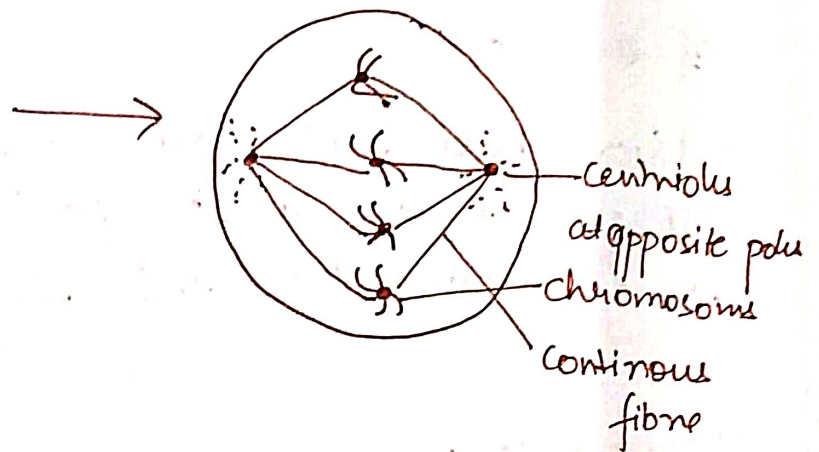 centriolus
at opposite poles
chromosoms
continous
fibre